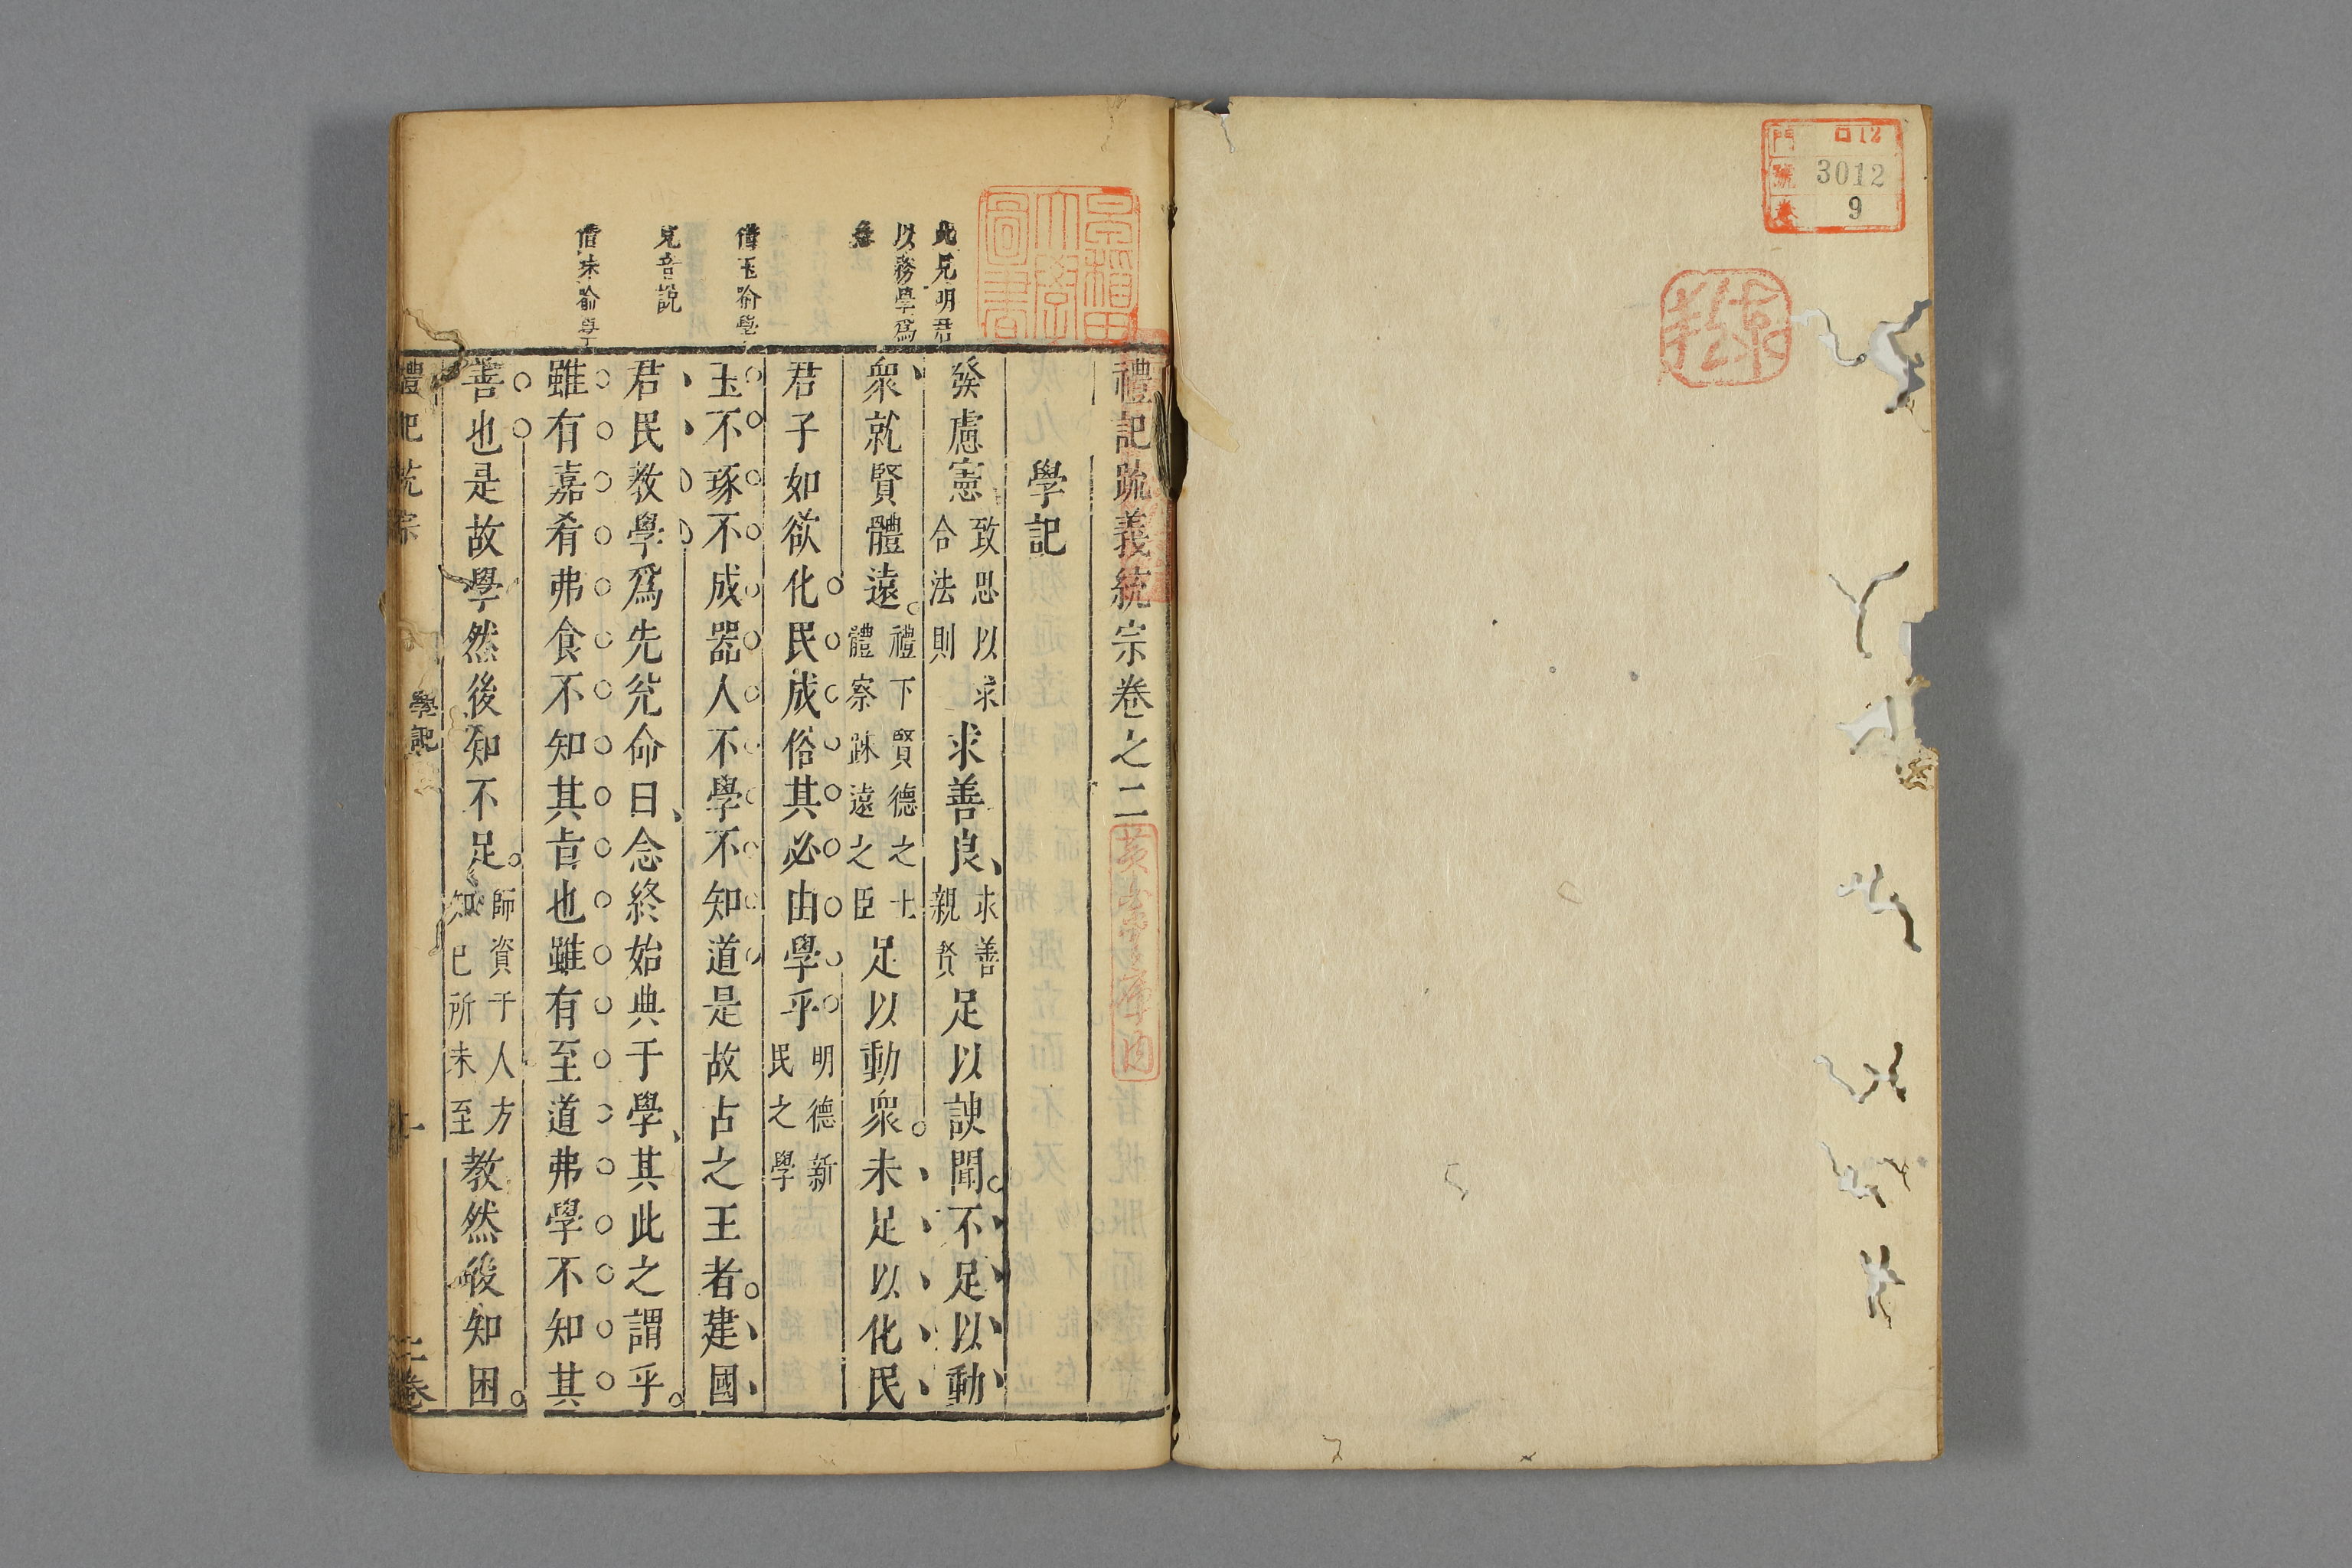 門 口12
號 3012
卷 9
早稻田
大學
圖書
禮記疏義統宗卷之二
學記
此見明君
以務學爲
發慮憲致思以求合法則求善良求善親賢足以謏聞不足以動
衆就賢體遠禮下賢德之士體察踈遠之臣足以動衆未足以化民
君子如欲化民成俗其必由學乎明德新民之學
借玉喻學
玉不琢不成器人不學不知道是故古之王者建國
兌音說
君民教學爲先兌命曰念終始典于學其此之謂乎
雖有嘉肴弗食不知其旨也雖有至道弗學不知其
善也是故學然後知不足師資于人方知已所未至教然後知困
禮記統宗
學記
一
二卷